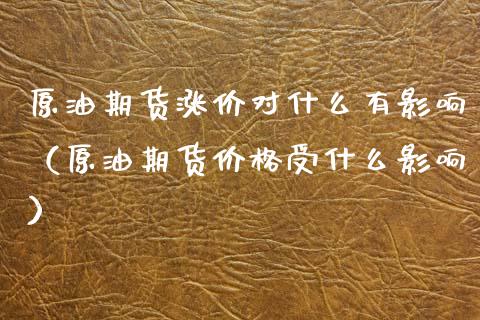 原油期货涨价对什么有影响
（原油期货价格受什么影响
）